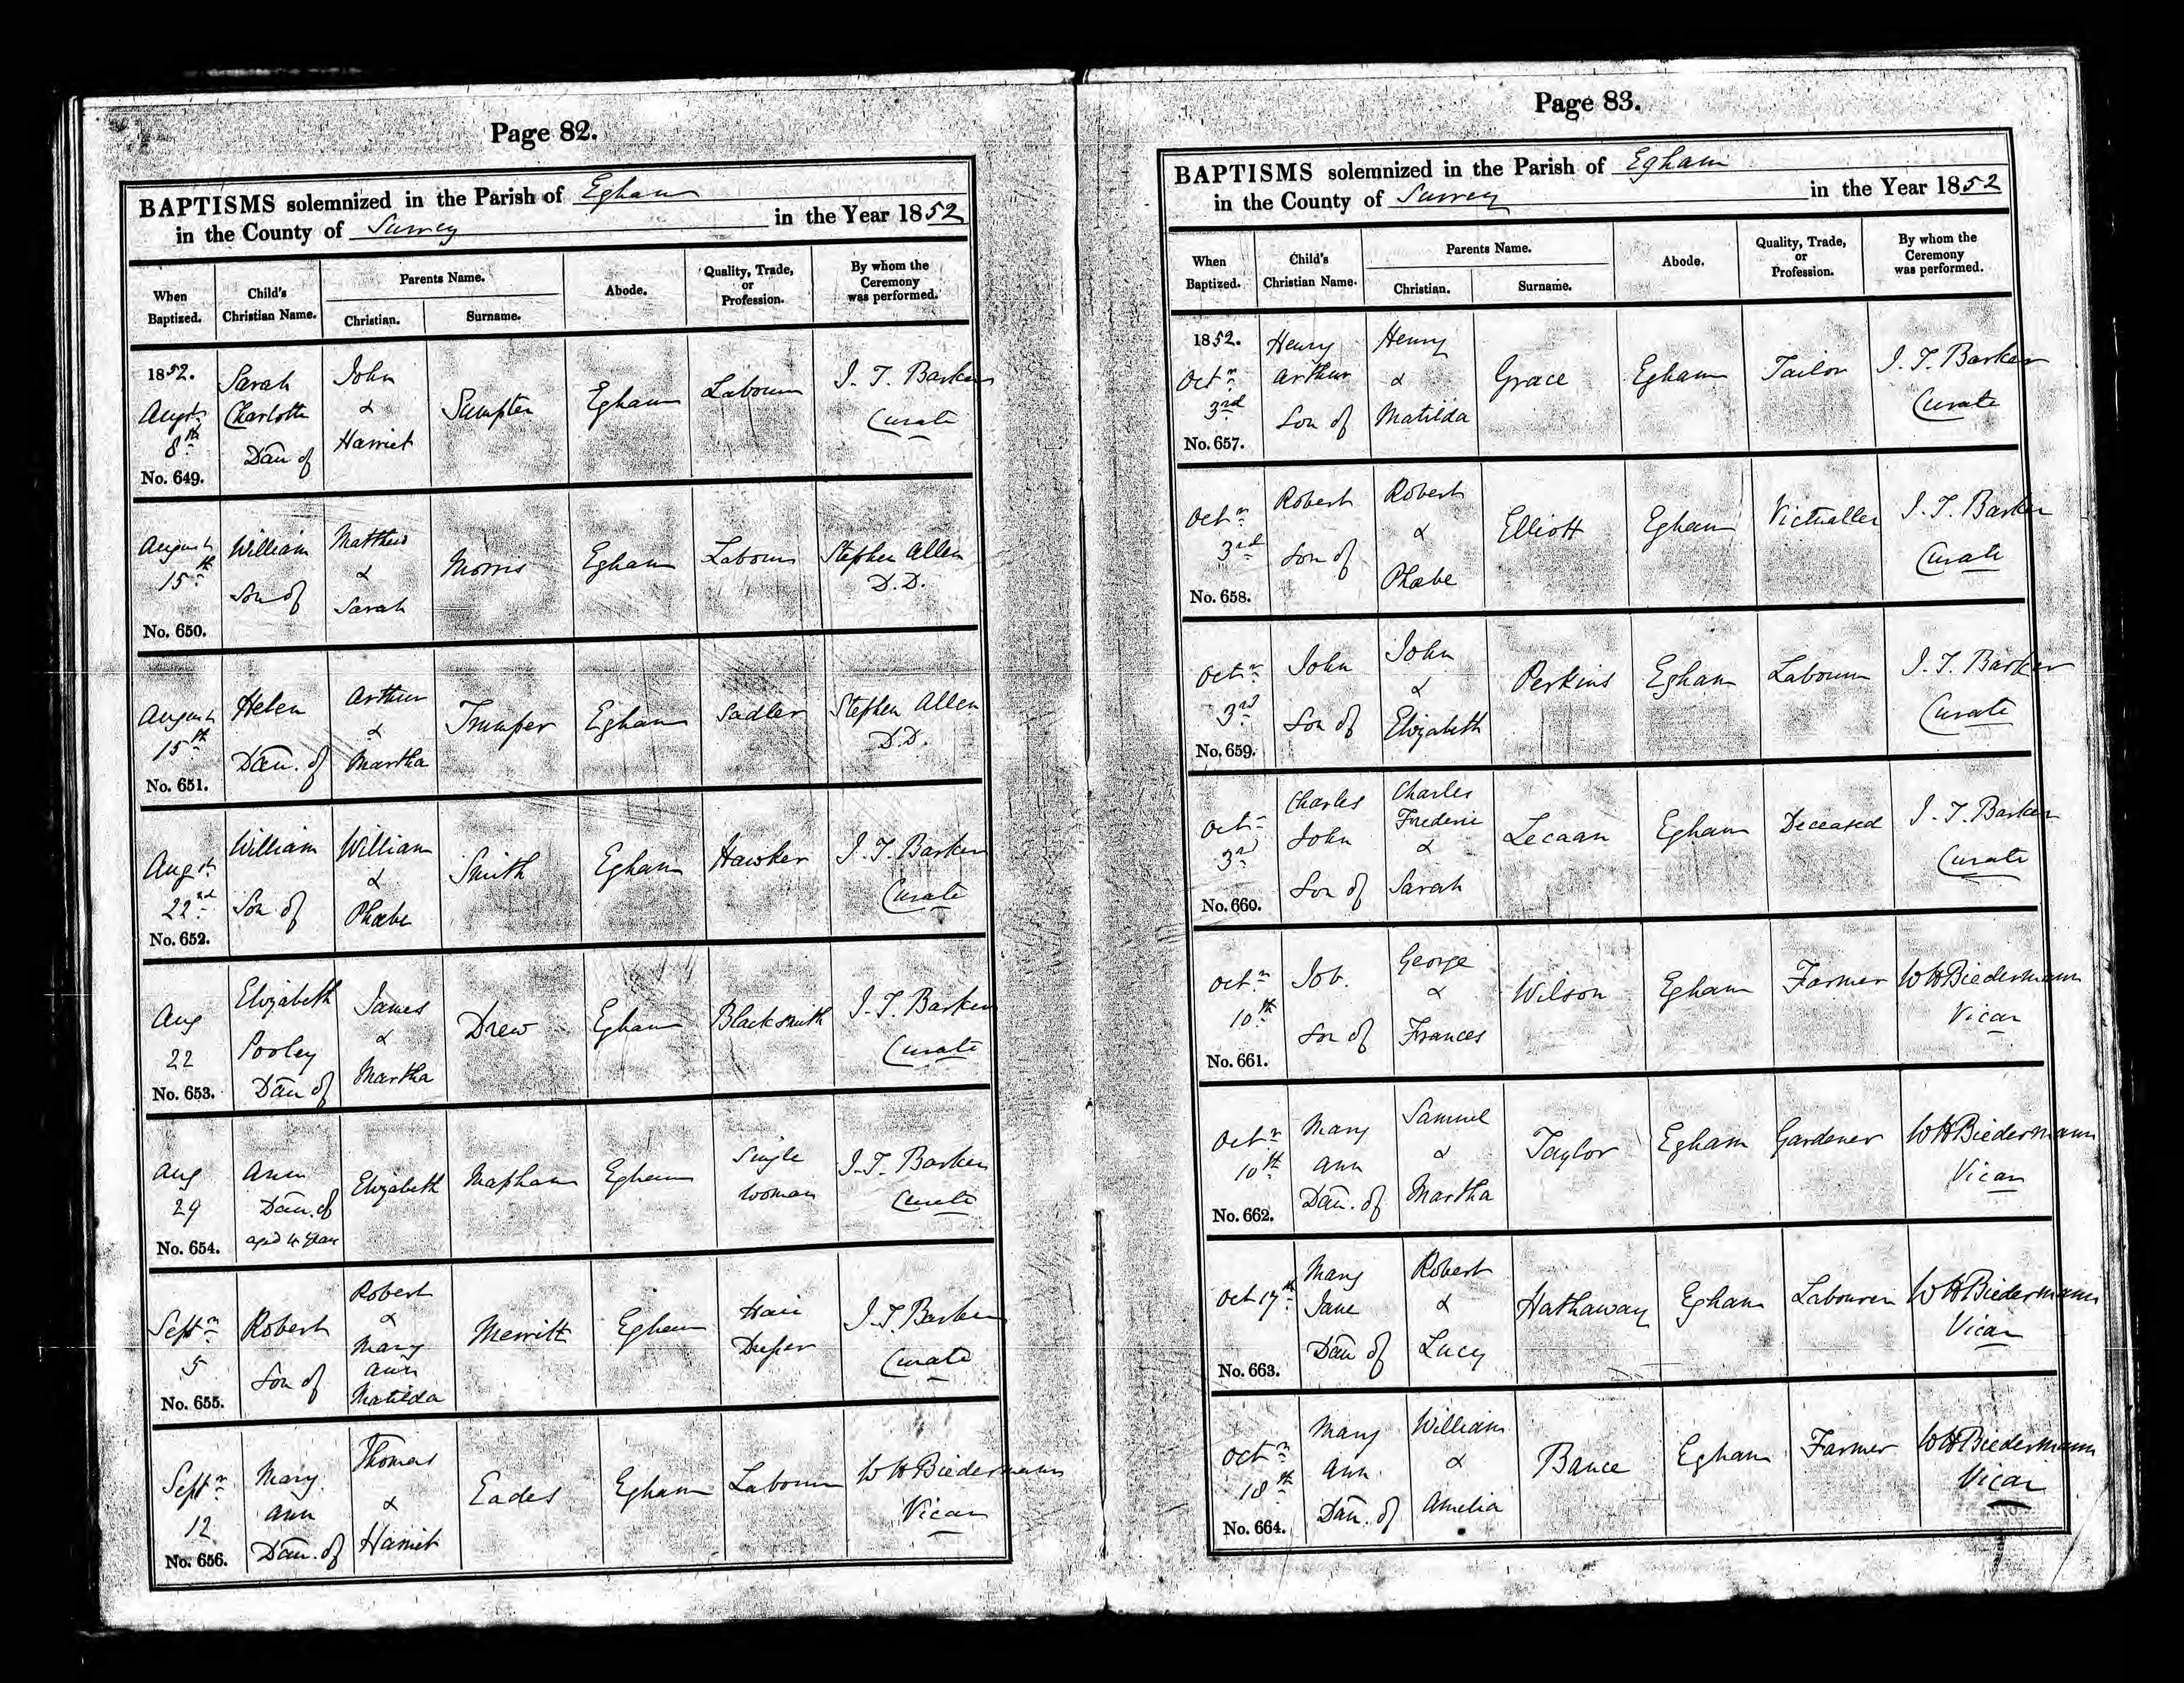 Page 82.
BAPTISMS solemnized in the Parish of Egham
in the County of Surrey in the Year 1852
When Baptized.
Child's Christian Name.
Parents Name.
Christian.
Surname.
Abode.
Quality, Trade, or Profession.
By whom the Ceremony was performed.
1852.
Augst
8th
No. 649.
Sarah
Charlotte
Dau of
John
&
Harriet
Sumpter
Egham
Labourer
J. T. Barker
Curate
August
15th
No. 650.
William
Son of
Matthew
&
Sarah
Morris
Egham
Labourer
Stephen Allen
D.D.
August
15th
No. 651.
Helen
Dau. of
Arthur
&
Martha
Trumper
Egham
Sadler
Stephen Allen
D.D.
Augst
22nd
No. 652.
William
Son of
William
&
Phœbe
Smith
Egham
Hawker
J. T. Barker
Curate
Aug
22
No. 653.
Elizabeth
Pooley
Dau of
James
&
Martha
Drew
Egham
Blacksmith
J. T. Barker
Curate
Aug
29
No. 654.
Ann
Dau. of
aged 4 years
Elizabeth
Mapham
Egham
Single
Woman
J. T. Barker
Curate
Septr
5
No. 655.
Robert
Son of
Robert
&
Mary
Ann
Matilda
Merritt
Egham
Hair
J. T. Barker
Curate
Septr
12
No. 656.
Mary
Ann
Dau. of
Thomas
&
Harriet
Eades
Egham
Labourer
W H Biedermann
Vicar
Page 83.
BAPTISMS solemnized in the Parish of Egham
in the County of Surrey in the Year 1852
When Baptized.
Child's Christian Name.
Parents Name.
Christian.
Surname.
Abode.
Quality, Trade, or Profession.
By whom the Ceremony was performed.
1852.
Octr
3rd
No. 657.
Henry
Arthur
Son of
Henry
&
Matilda
Grace
Egham
Tailor
J. T. Barker
Curate
Octr
3rd
No. 658.
Robert
Son of
Robert
&
Phœbe
Elliott
Egham
Victualler
J. T. Barker
Curate
Octr
3rd
No. 659.
John
Son of
John
&
Elizabeth
Perkins
Egham
Labourer
J. T. Barker
Curate
Octr
3rd
No. 660.
Charles
John
Son of
Charles
Frederic
&
Sarah
Lecaan
Egham
Deceased
J. T. Barker
Curate
Octr
10th
No. 661.
Job.
Son of
George
&
Frances
Wilson
Egham
Farmer
W H Biedermann
Vicar
Octr
10th
No. 662.
Mary
Ann
Dau. of
Samuel
&
Martha
Taylor
Egham
Gardener
W H Biedermann
Vicar
Oct 17th
No. 663.
Mary
Jane
Dau of
Robert
&
Lucy
Hathaway
Egham
Labourer
W H Biedermann
Vicar
Octr
18th
No. 664.
Mary
Ann.
Dau. of
William
&
Amelia
Bance
Egham
Farmer
W H Biedermann
Vicar